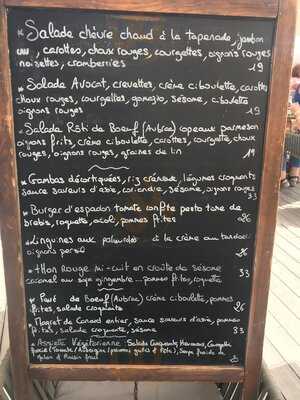 * Salade chèvre chaud à la tapenade, jambon
cru, carottes, choux rouges, courgettes, oignons rouges
noisettes, cranberries 19
* Salade Avocat, crevettes, crème ciboulette, carottes
choux rouges, courgettes, sésame, ciboulette
oignons rouges 19
* Salade Roti de Boeuf (Aubrac) copeaux parmesan
oignons frits, crème ciboulette, carottes, courgette, choux
rouges, oignons rouges, graines de lin 19
* Gambas décortiquées, riz crémeux, légumes croquants
sauce saveurs d'asie, coriandre, sésame, oignons rouges
33
* Burger d'espadon tomate confite pesto tome de
brebis, roquette, aïoli, pommes frites 26
* Linguines aux palourdes à la crème au tandoori
oignons persil 26
* Thon Rouge mi-cuit en croûte de sésame
caramel au soja gingembre... pommes frites, roquette
33
* Pavé de Boeuf (Aubrac) crème ciboulette, pommes
frites, salade croquante 26
* Magret de Canard entier, sauce saveurs d'asie, pommes
frites, salade croquante, sésame 33
* Assiette Végétarienne: Salade Croquante, Houmous,
Soupe froide de
Melon